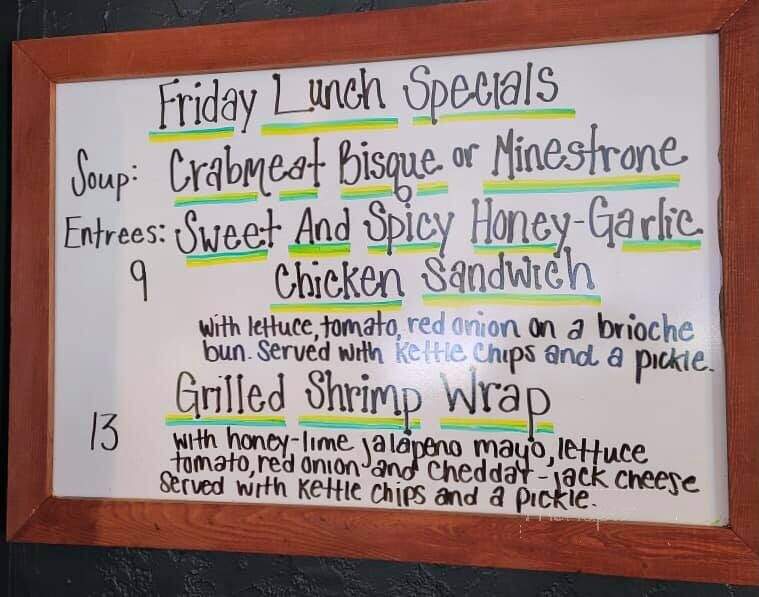 Friday Lunch Specials
Soup: Crabmeat Bisque or Minestrone
Entrees: Sweet And Spicy Honey-Garlic
9 Chicken Sandwich
with lettuce, tomato, red onion on a brioche
bun. Served with Kettle Chips and a pickle.
Grilled Shrimp Wrap
13 with honey-lime jalapeno mayo, lettuce
tomato, red onion and cheddar-jack cheese
Served with Kettle Chips and a pickle.